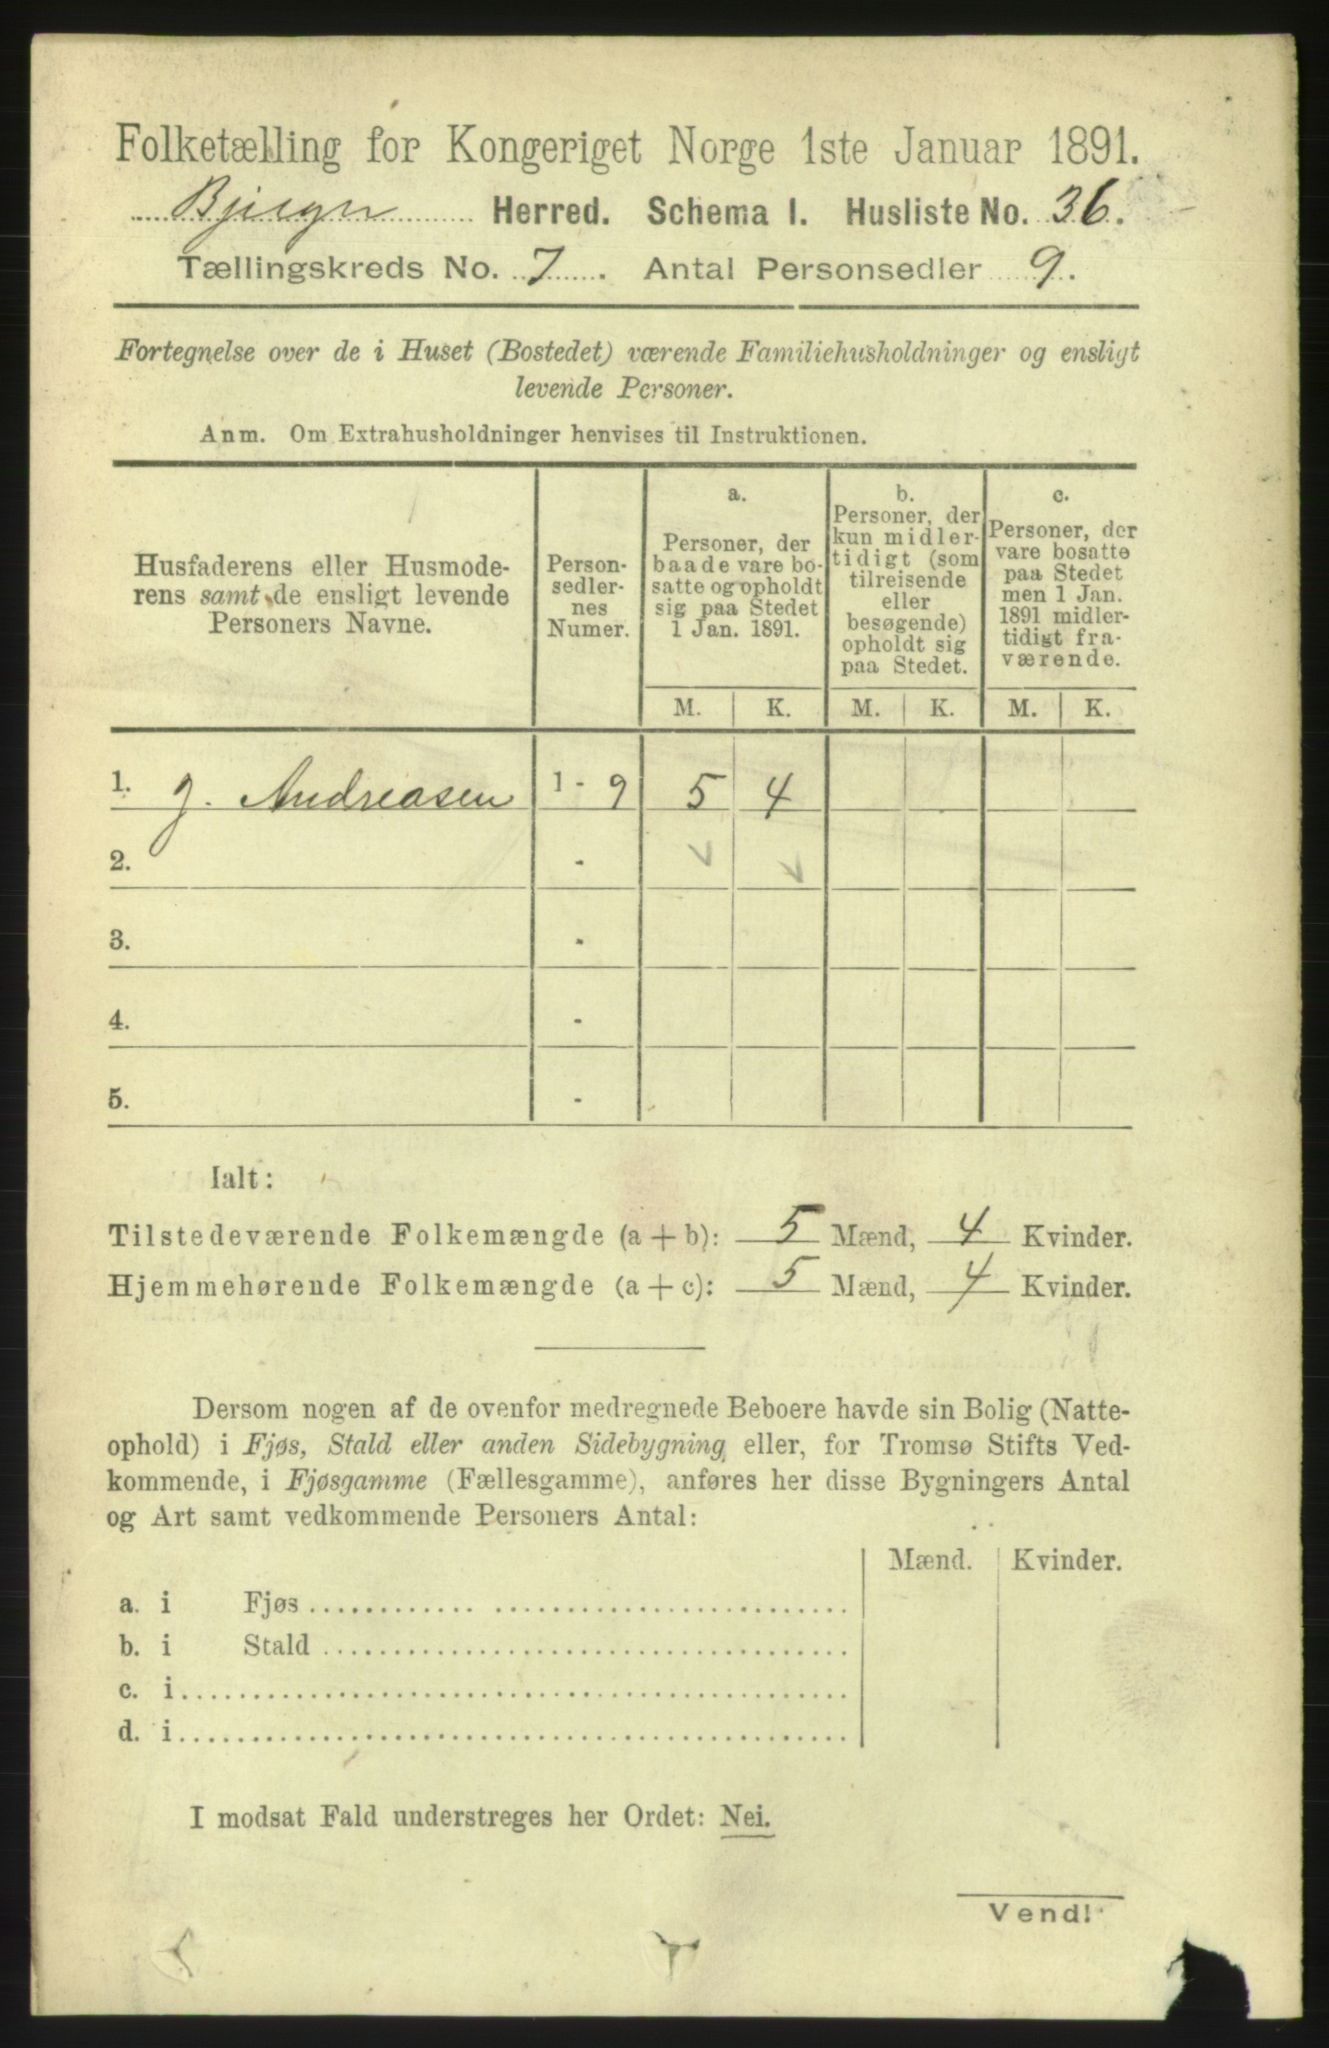 Folketælling for Kongeriget Norge 1ste Januar 1891.
Bjugn Herred. Schema I. Husliste No. 36.
Tællingskreds No. 7. Antal Personsedler 9.
Fortegnelse over de i Huset (Bostedet) værende Familiehusholdninger og ensligt
levende Personer.
Anm. Om Extrahusholdninger henvises til Instruktionen.
Husfaderens eller Husmode-
rens samt de ensligt levende
Personers Navne.
Person-
sedler-
nes
Numer.
a.
Personer, der
baade vare bo-
satte og opholdt
sig paa Stedet
1 Jan. 1891.
b.
Personer, der
kun midler-
tidigt (som
tilreisende
eller
besøgende)
opholdt sig
paa Stedet.
c.
Personer, der
vare bosatte
paa Stedet
men 1 Jan.
1891 midler-
tidigt fra-
værende.
M. K. M. K. M. K.
1. J. Andreasen 1 - 9 5 4
2. -
3. -
4. -
5. -
Ialt:
Tilstedeværende Folkemængde (a + b): 5 Mænd, 4 Kvinder.
Hjemmehørende Folkemængde (a + c): 5 Mænd, 4 Kvinder.
Dersom nogen af de ovenfor medregnede Beboere havde sin Bolig (Natte-
ophold) i Fjøs, Stald eller anden Sidebygning eller, for Tromsø Stifts Ved-
kommende, i Fjøsgamme (Fællesgamme), anføres her disse Bygningers Antal
og Art samt vedkommende Personers Antal:
Mænd. Kvinder.
a. i Fjøs
b. i Stald
c. i
d. i
I modsat Fald understreges her Ordet: Nei.
Vend!